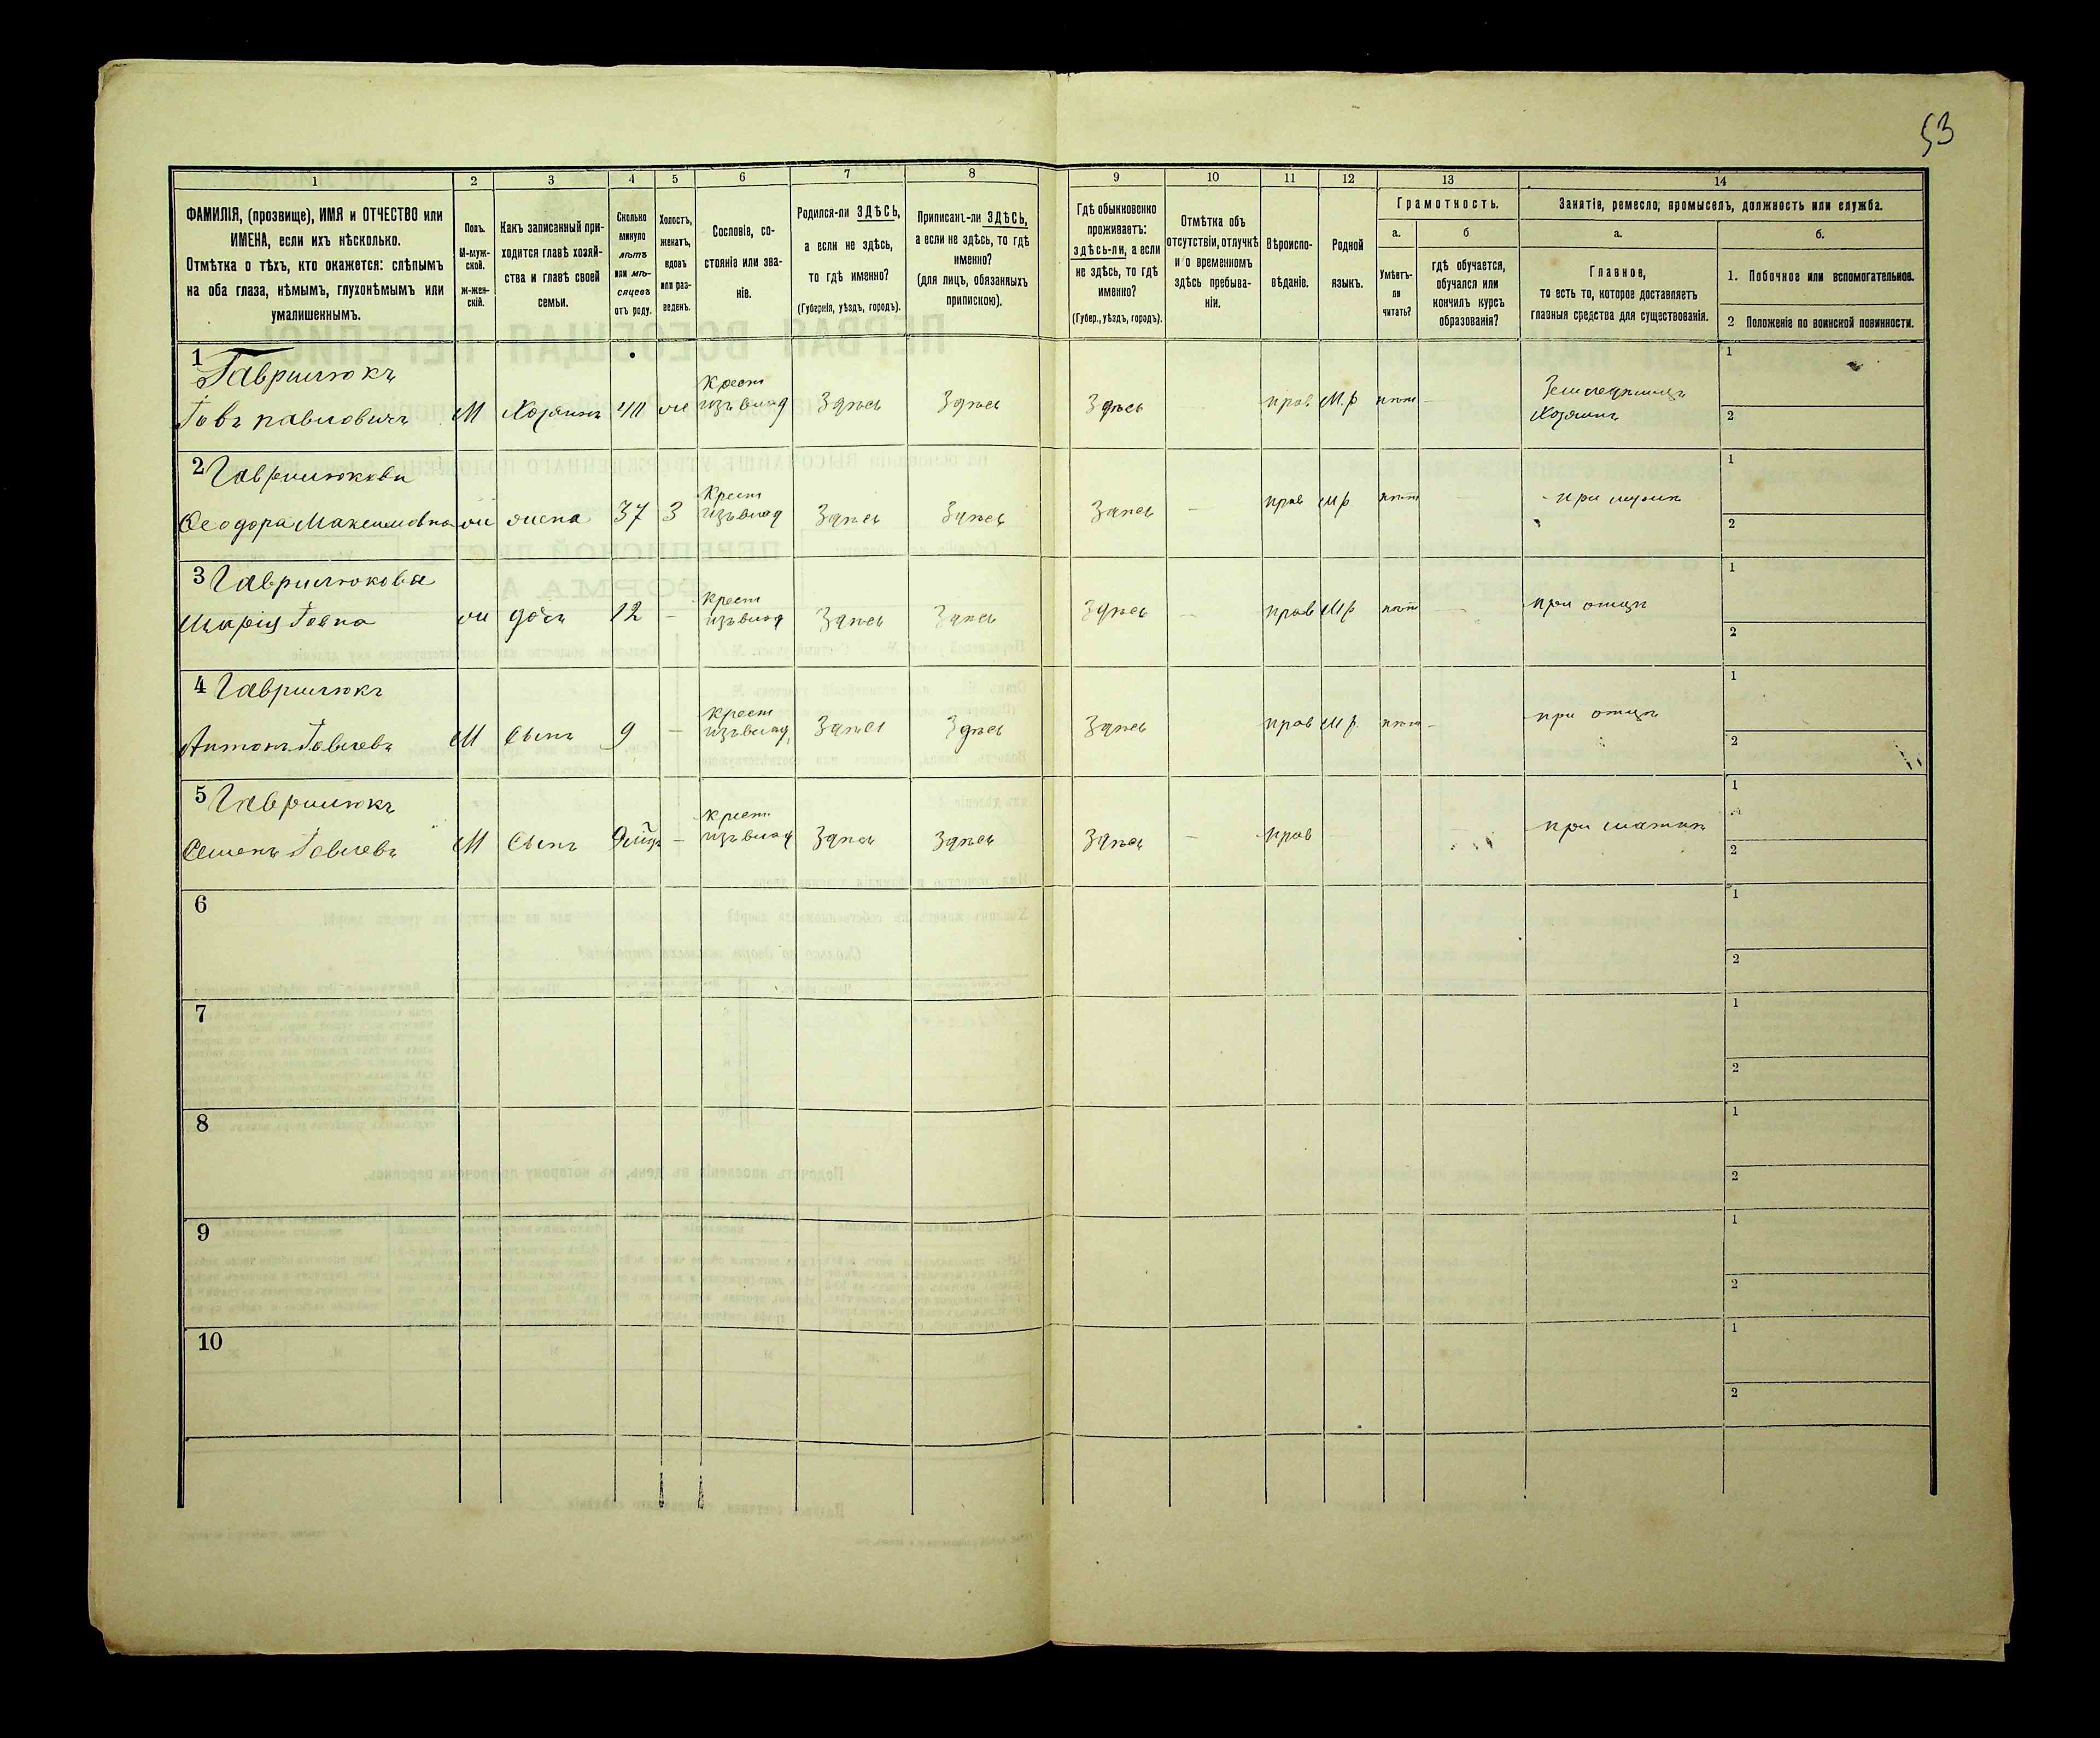 53
1
2
3
4
5
6
7
8
9
10
11
12
13
14
ФАМИЛІЯ, (прозвище), ИМЯ и ОТЧЕСТВО или
ИМЕНА, если ихъ нѣсколько.
Отмѣтка о тѣхъ, кто окажется: слѣпымъ
на оба глаза, нѣмымъ, глухонѣмымъ или
умалишеннымъ.
Полъ.
М-муж-
ской.
ж-жен-
скій.
Какъ записанный при-
ходится главѣ хозяй-
ства и главѣ своей
семьи.
Сколько
минуло
лѣтъ
или мѣ-
сяцевъ
отъ роду.
Холостъ,
женатъ,
вдовъ
или раз-
веденъ.
Сословіе, со-
стояніе или зва-
ніе.
Родился-ли ЗДѢСЬ,
а если не здѣсь,
то гдѣ именно?
(Губернія, уѣздъ, городъ).
Приписанъ-ли ЗДѢСЬ,
а если не здѣсь, то гдѣ
именно?
(для лицъ, обязанныхъ
припискою).
Гдѣ обыкновенно
проживаетъ:
здѣсь-ли, а если
не здѣсь, то гдѣ
именно?
(Губер., уѣздъ, городъ).
Отмѣтка объ
отсутствіи, отлучкѣ
и о временномъ
здѣсь пребыва-
ніи.
Вѣроиспо-
вѣданіе.
Родной
языкъ.
Грамотность.
а.
Умѣетъ-
ли
читать?
б
гдѣ обучается,
обучался или
кончилъ курсъ
образованія?
Занятіе, ремесло, промыселъ, должность или служба.
а.
Главное,
то есть то, которое доставляетъ
главныя средства для существованія.
б.
1. Побочное или вспомогательное.
2 Положеніе по воинской повинности.
1 Гаврилюкъ
Іовъ Павловичъ М Хозяинъ ж Крест изъ влад Здѣсь Здѣсь Здѣсь прав. М.р нѣт Земледѣлецъ
Хозяинъ
1
2
2 Гаврилюкова
Ѳеодора Максимовна ж жена 37 З Крест изъ влад Здѣсь Здѣсь Здѣсь — прав М р нѣт — при мужѣ
1
2
3 Гаврилюкова
Марія Іовна ж дочь 12 — Крест изъ влад Здѣсь Здѣсь Здѣсь — прав М р нѣт — при отцѣ
1
2
4 Гаврилюкъ
Антонъ Іовлевъ М Сынъ 9 — Крест изъ влад Здѣсь Здѣсь Здѣсь прав М р. нѣт — при отцѣ
1
2
5 Гаврилюкъ
Семенъ Іовлевъ М Сынъ — Крест изъ влад Здѣсь Здѣсь Здѣсь — прав при матери
1
2
6
1
2
7
1
2
8
1
2
9
1
2
10
1
2